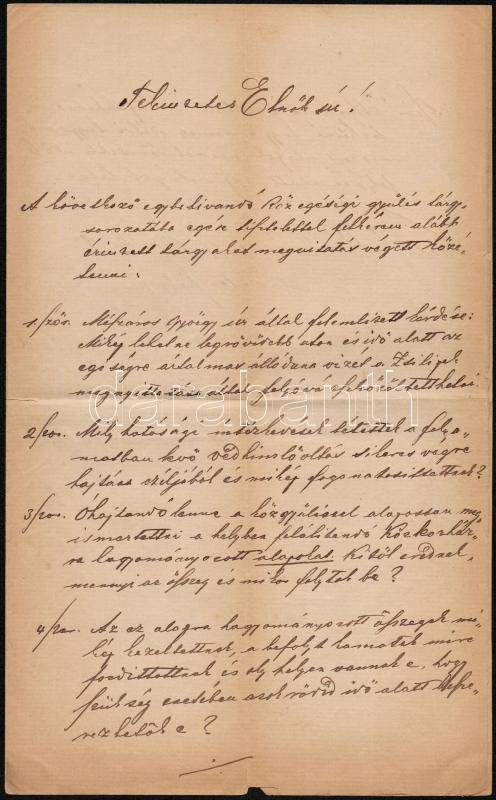 Tekintetes Elnök úr!
A következő egybehivandó Közegéségi gyülés tárgy-
sorozatába egész tisztelettel felkérem alább
érintett tárgyakat megvitatás végett közé-
tenni:
1./szor. Mészáros György úr által felemlitett kérdése:
Mikép lehetne legrövidebb uton és idő alatt az
egeségre ártalmas állóduna vizét a Zsilipek
megnyittatása által folyóvá
2/szor. Mely hatosági intézkedések tétettek a folya-
matban levő védhimlőoltás sikeres végre
hajtása czéljából és mikép foganatosittattak?
3/szor. Óhajtandó lenne a közgyüléssel alaposan meg
ismertetni a helyben felállitandó Közkorház-
ra hagyományozott alapokat. Kitöl erednek,
mennyi az összeg és mikor folytak be?
4/szer. Az ez alapra hagyományozott összegek mi-
kép kezeltettek, a befolyt kamatok mire
fordittottak és oly helyen vannak e, hogy
szükség esetében azok rövid idő alatt
vezhetök e?
darabanth